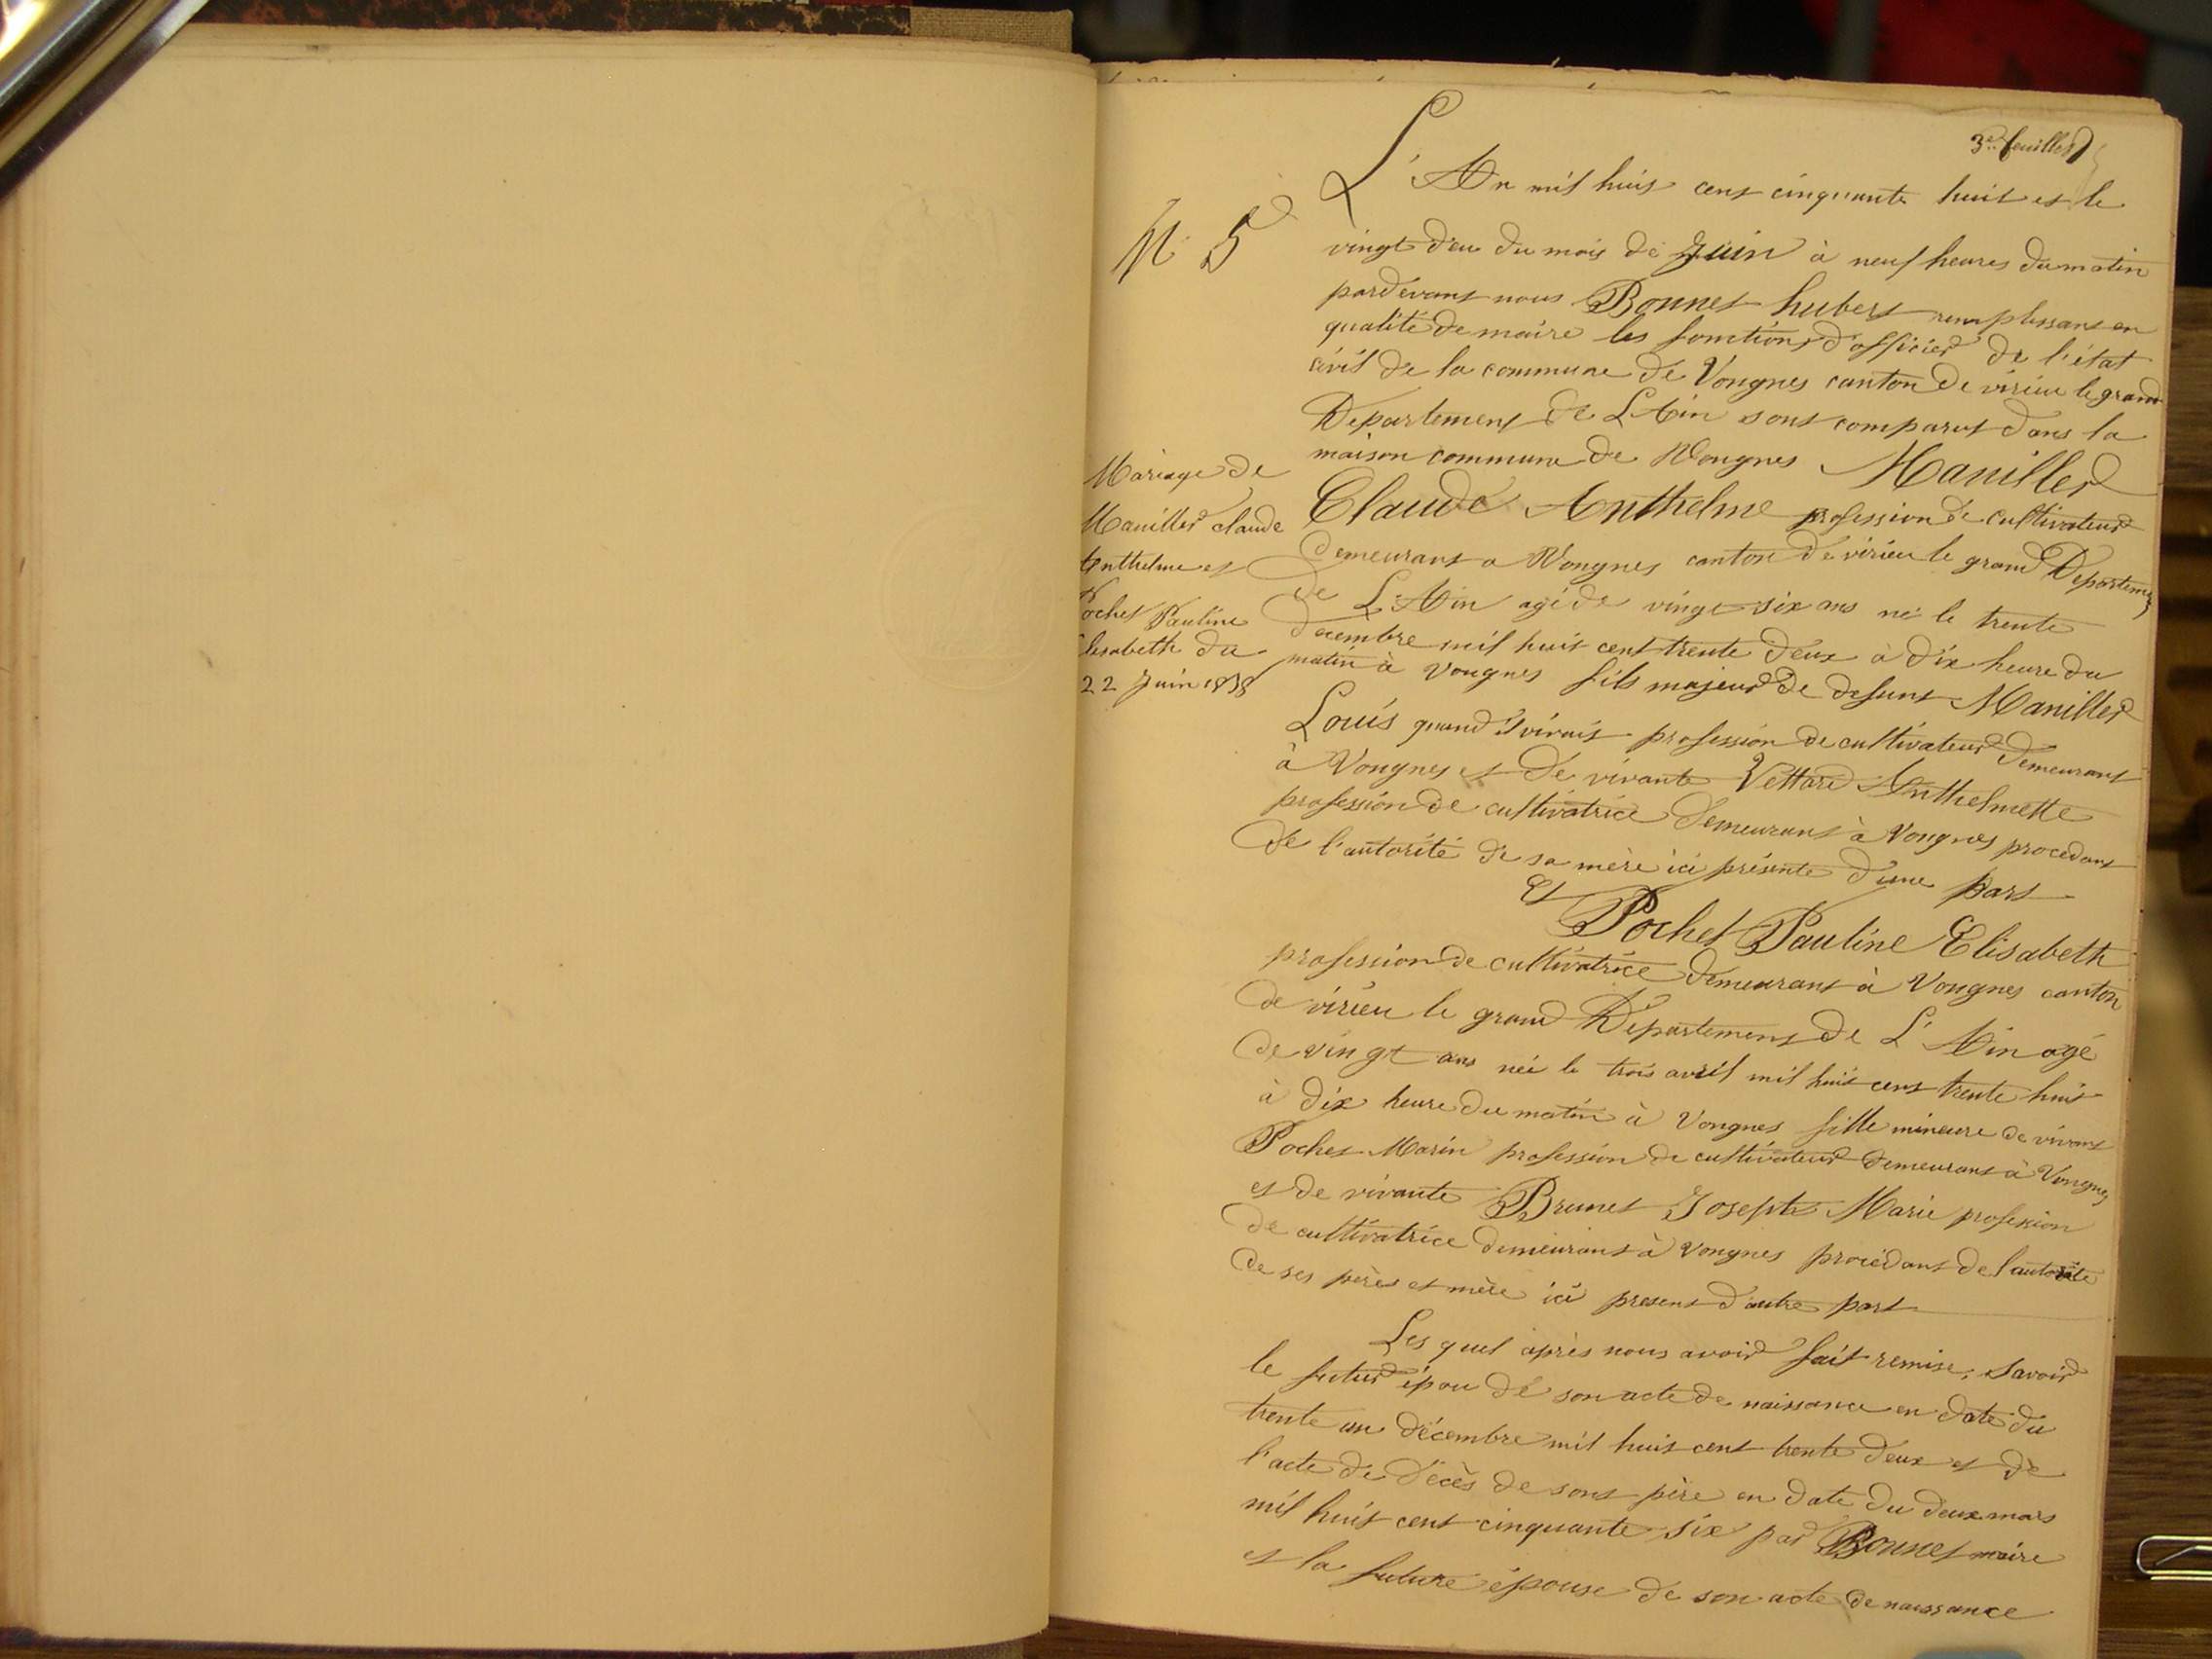 3e feuillet
N° 5
L'An mil huit cent cinquante huit et le
vingt deu du mois de Juin à neuf heures du matin
pardevant nous Bonnet hubert remplissant en
qualité de maire les fonctions d'officier de l'état
civil de la commune de Vongnes canton de virieu le grand
Departement de L'Ain sont comparut dans la
maison commune de Vongnes Maniller
Claude Anthelme profession de cultivateur
demeurant a Vongnes canton de virieu le grand Departement
de L'Ain agé de vingt six ans né le trente
decembre mil huit cent trente deux à dix heure du
matin à vongnes fils majeur de defunt Maniller
Louis quand il vivait profession de cultivateur demeurant
à Vongnes et de vivante Vettard Anthelmette
profession de cultivatrice demeurant à Vongnes procedant
de l'autorité de sa mère ici présente d'une part
Et
Pochet Pauline Elisabeth
profession de cultivatrice demeurant à Vongnes canton
de virieu le grand Département de L'Ain agé
de vingt ans née le trois avril mil huit cent trente huit
à dix heure du matin à Vongnes fille mineure de vivant
Pochet Marin profession de cultivateur demeurant à Vongnes
et de vivante Brunet Josephte Marie profession
de cultivatrice demeurant à vongnes procédant de l'autorité
de ses pères et mère ici present d'autre part
Les quel après nous avoir fait remise; savoir
le futur épou de son acte de naissance en date du
trente un décembre mil huit cent trente deux et de
l'acte de décès de sont père en date du deux mars
mil huit cent cinquante six par Bonnet maire
et la future épouse de son acte de naissance
Mariage de
Maniller claude
Anthelme et
Pochet Pauline
Elisabeth du
22 Juin 1858